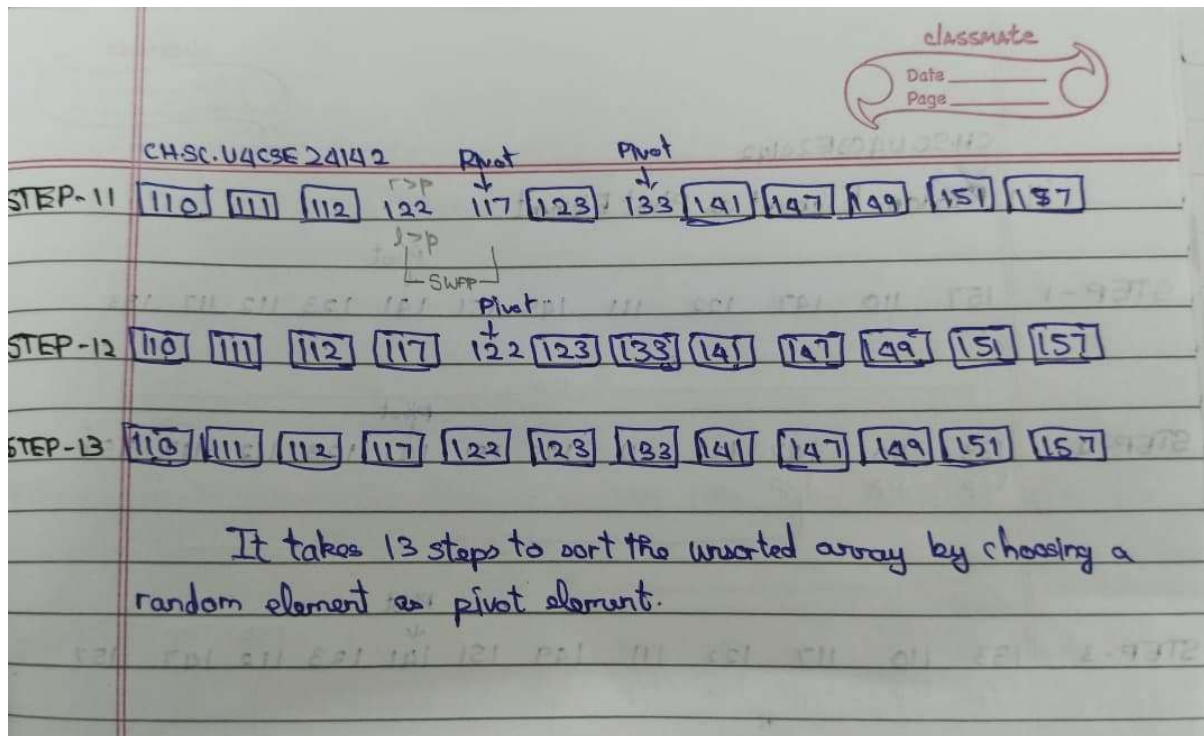 classmate
Date
Page
CH.SC.U4CSE24142
Pivot Pivot
r>p
STEP-11 110 111 112 122 117 123 133 141 147 149 151 157
l>p
SWAP
Pivot
STEP-12 110 111 112 117 122 123 133 141 147 149 151 157
STEP-13 110 111 112 117 122 123 133 141 147 149 151 157
It takes 13 steps to sort the unsorted array by choosing a
random element as pivot element.